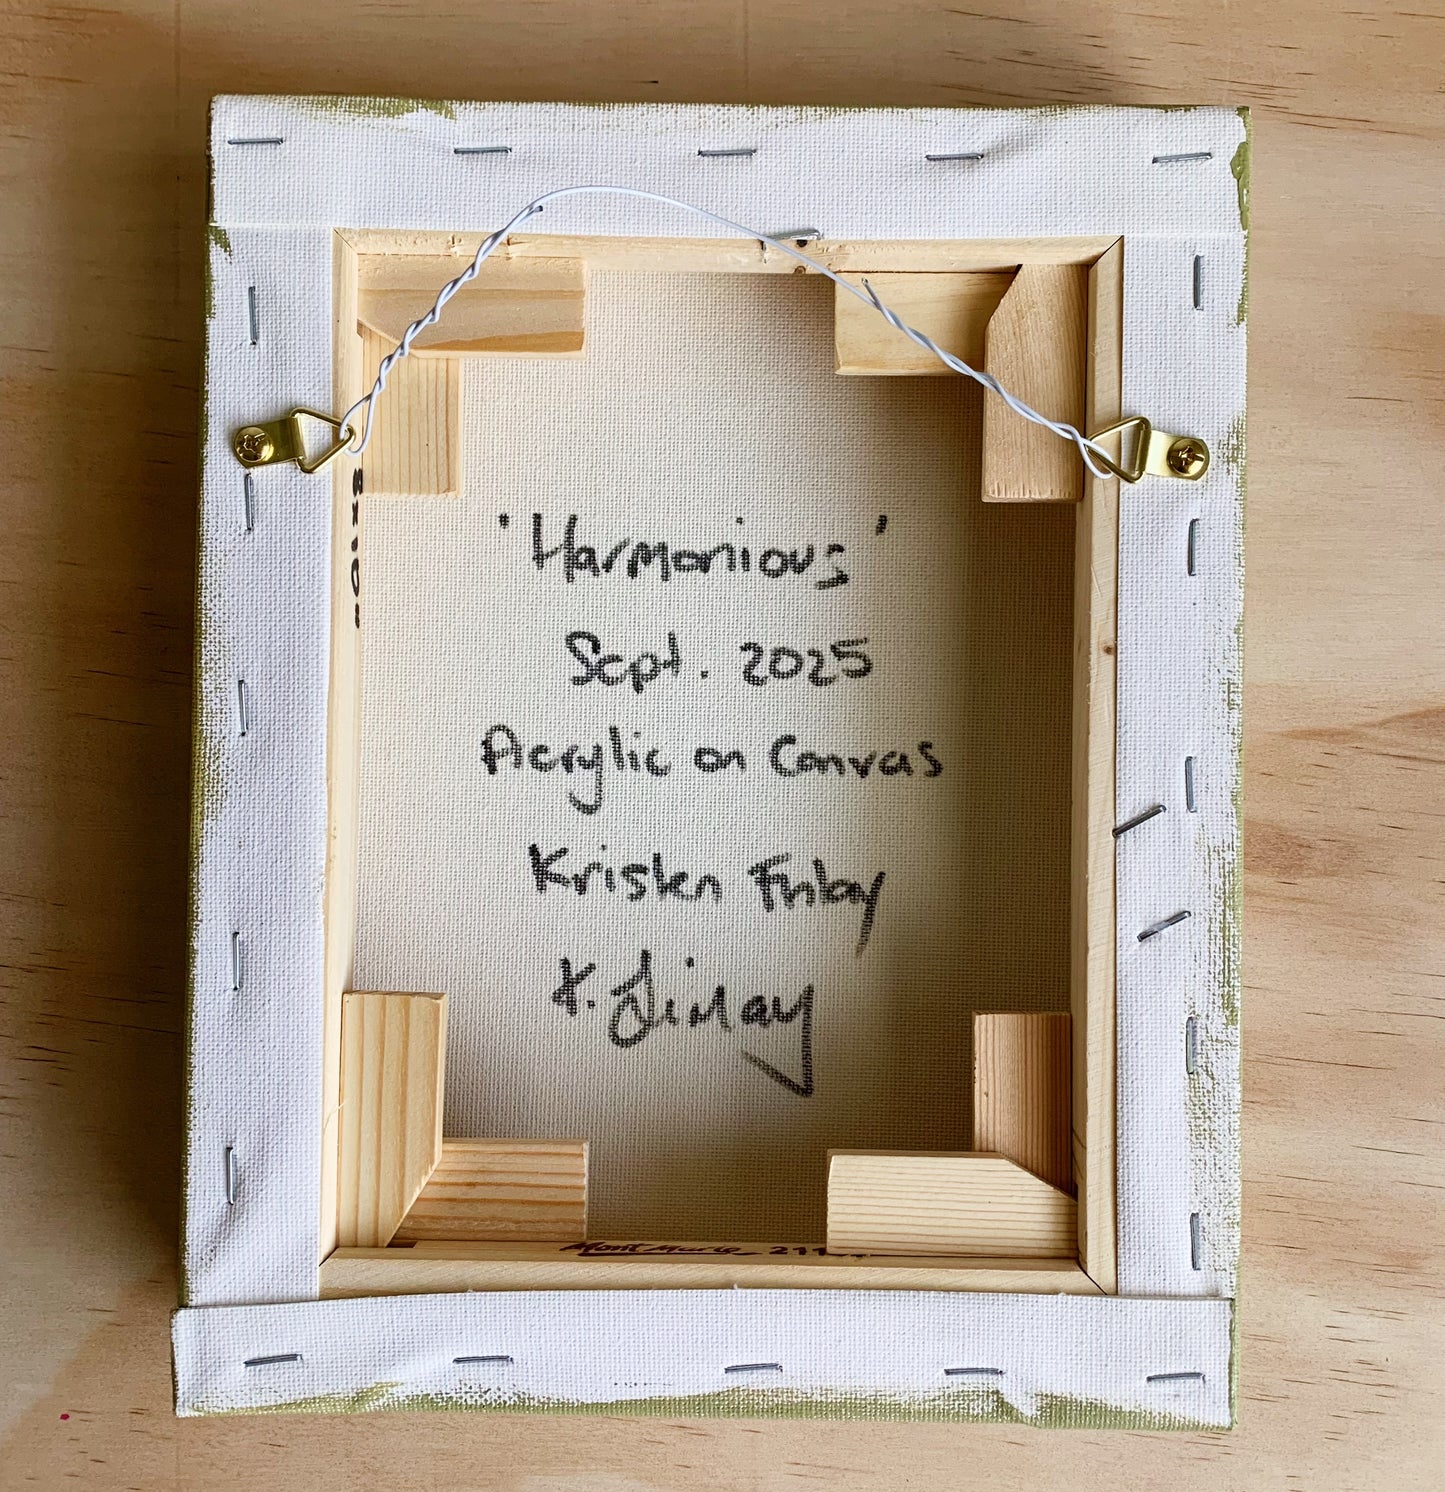 8x10"
'Harmonious'
Sept. 2025
Acrylic on Canvas
Kristen Finlay
K. Finlay
Mont Marte